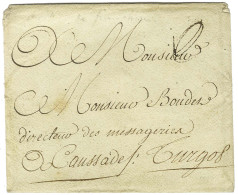 A Monsieur
Monsieur Boudet
directeur des messageries
A Caussade p. Turgot